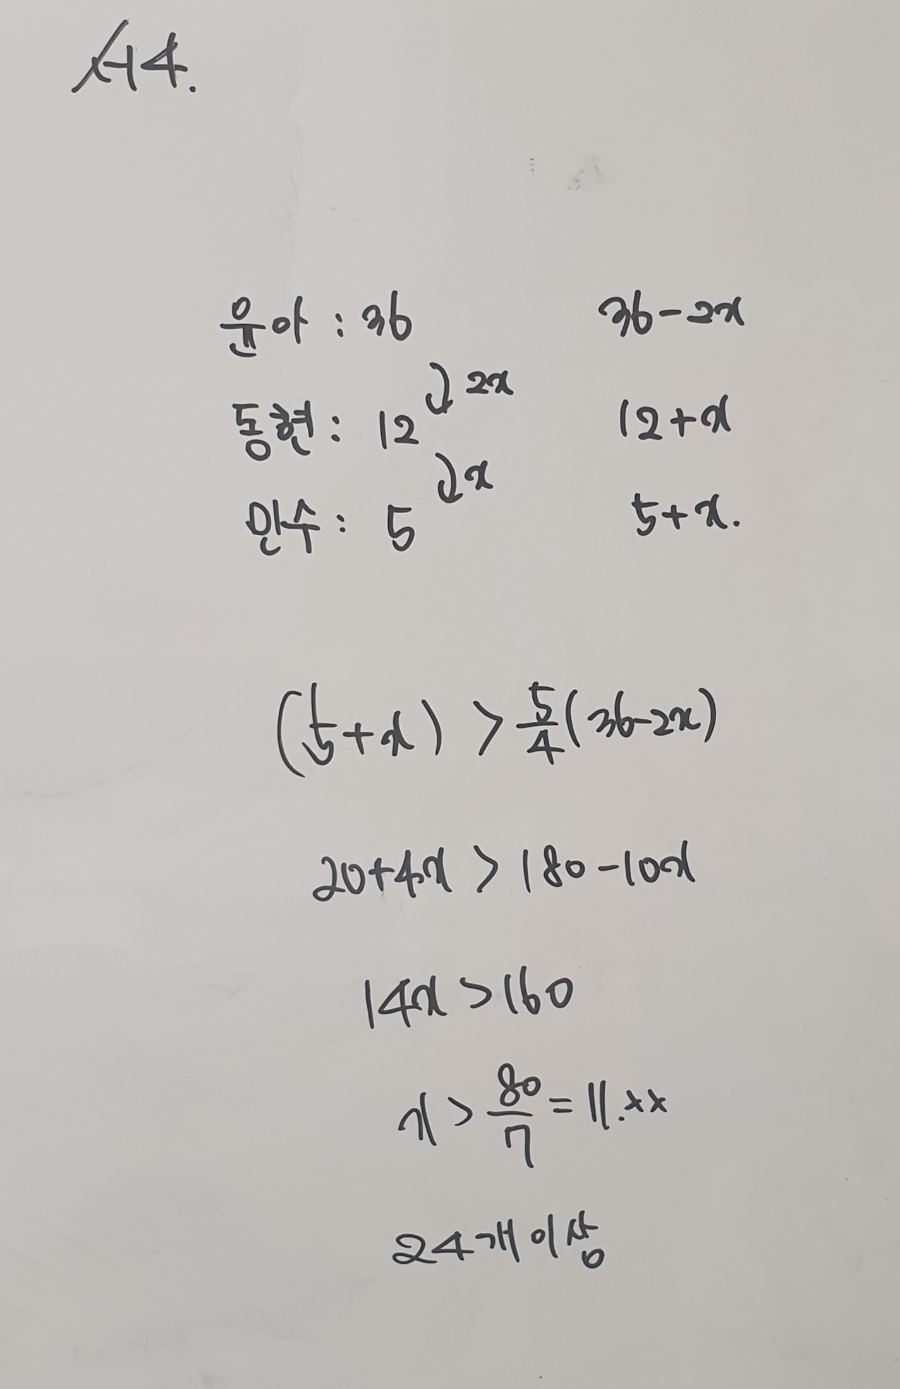 서4.
윤아 : 36 36-2x
2x
동현 : 12 12+x
x
민수 : 5 5+x.
(5+x) > 5/4(36-2x)
20+4x > 180-10x
14x > 160
x > 80/7 = 11.xx
24개 이상